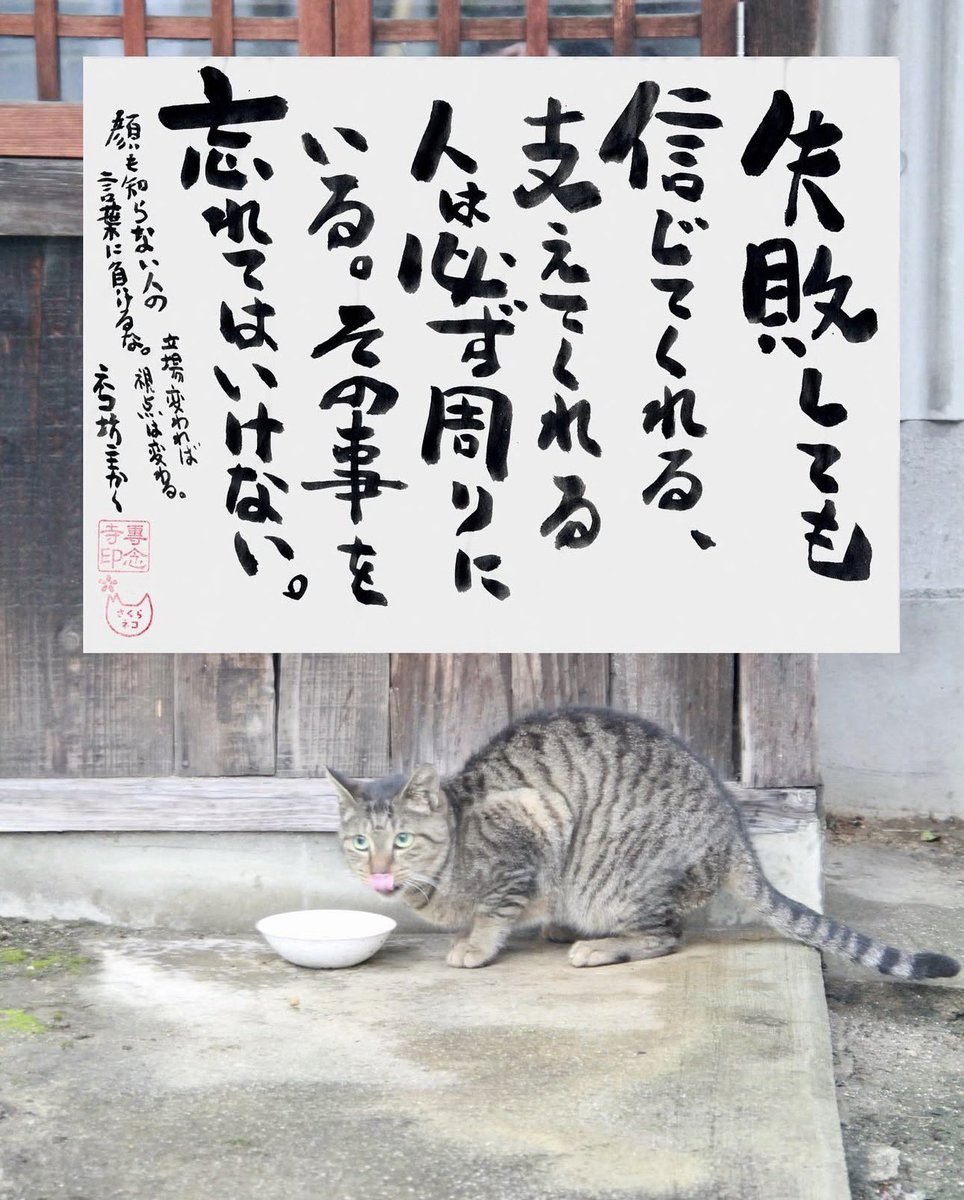 失敗しても
信じてくれる、
支えてくれる
人は必ず周りに
いる。その事を
忘れてはいけない。
顔も知らない人の
言葉に負けるな。
立場変われば
視点は変わる。
ネコ坊主かく
専念
寺印
さくら
ネコ